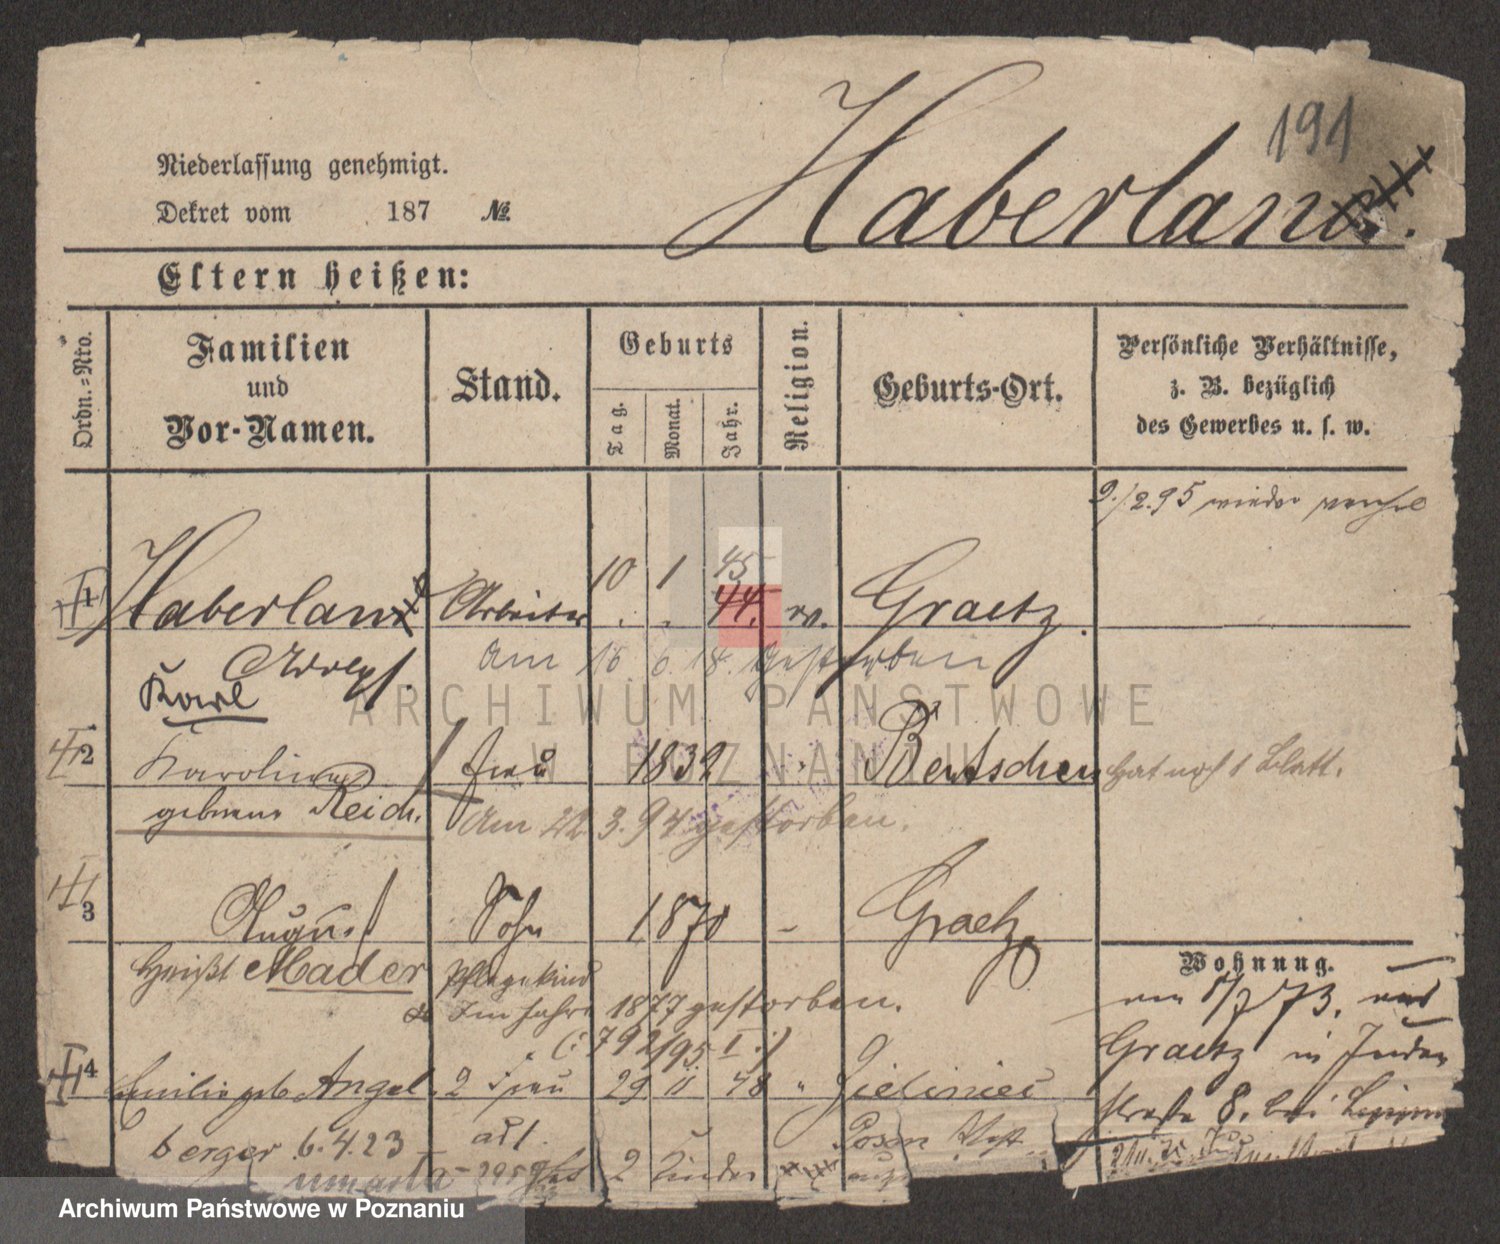 191
Niederlassung genehmigt.
Dekret vom 187 №
Haberland.
Eltern heißen:
Ordn.=Nro.
Familien
und
Vor-Namen.
Stand.
Geburts
Tag.
Monat.
Jahr.
Religion.
Geburts-Ort.
Persönliche Verhältnisse,
z. B. bezüglich
des Gewerbes u. s. w.
9./2.95 wieder
45
10 1
1 Haberland Arbeiter 44. ev. Graetz.
Adolf. Am 18 6 18. gestorben
Karl
2 Karoline Frau 1832 Bentschen hat noch 1 Blatt.
geborene Reich. Am 22. 3. 94 gestorben.
3 August Sohn 1870 - Graetz
heißt Mader Pflegekind
Im Jahre 1877 gestorben.
(: 792/95 I :)
4 Emilie geb. Angel 2 Frau 29 11 48 "
berger 6.4.23 2 Kinder Posen
umarła
Wohnung.
am 1/7 73. aus
Graetz in Juden
straße 8. bei
ARCHIWUM PAŃSTWOWE
W POZNANIU
Archiwum Państwowe w Poznaniu